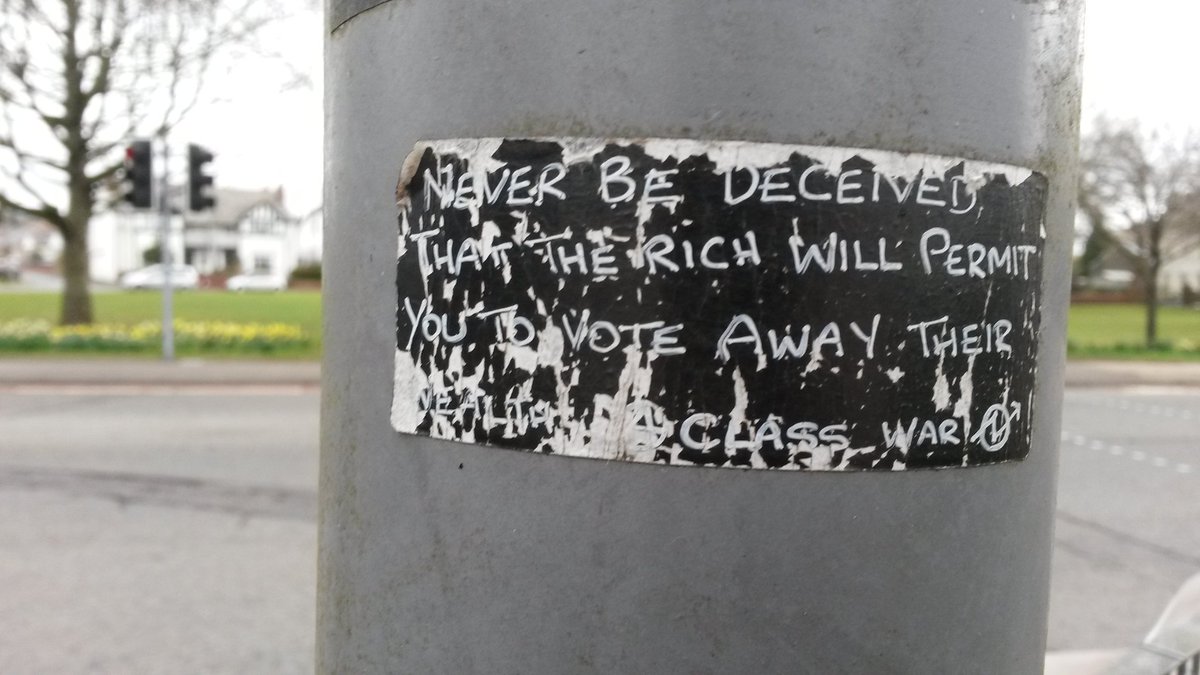 NEVER BE DECEIVED
THAT THE RICH WILL PERMIT
YOU TO VOTE AWAY THEIR
WEALTH CLASS WAR